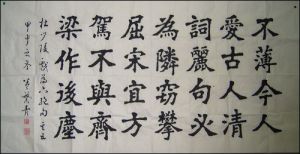 不薄今人
愛古人清
詞麗句必
為隣竊攀
屈宋宜方
駕不與齊
梁作後塵
杜少陵戲為六絕句之五
甲申之冬